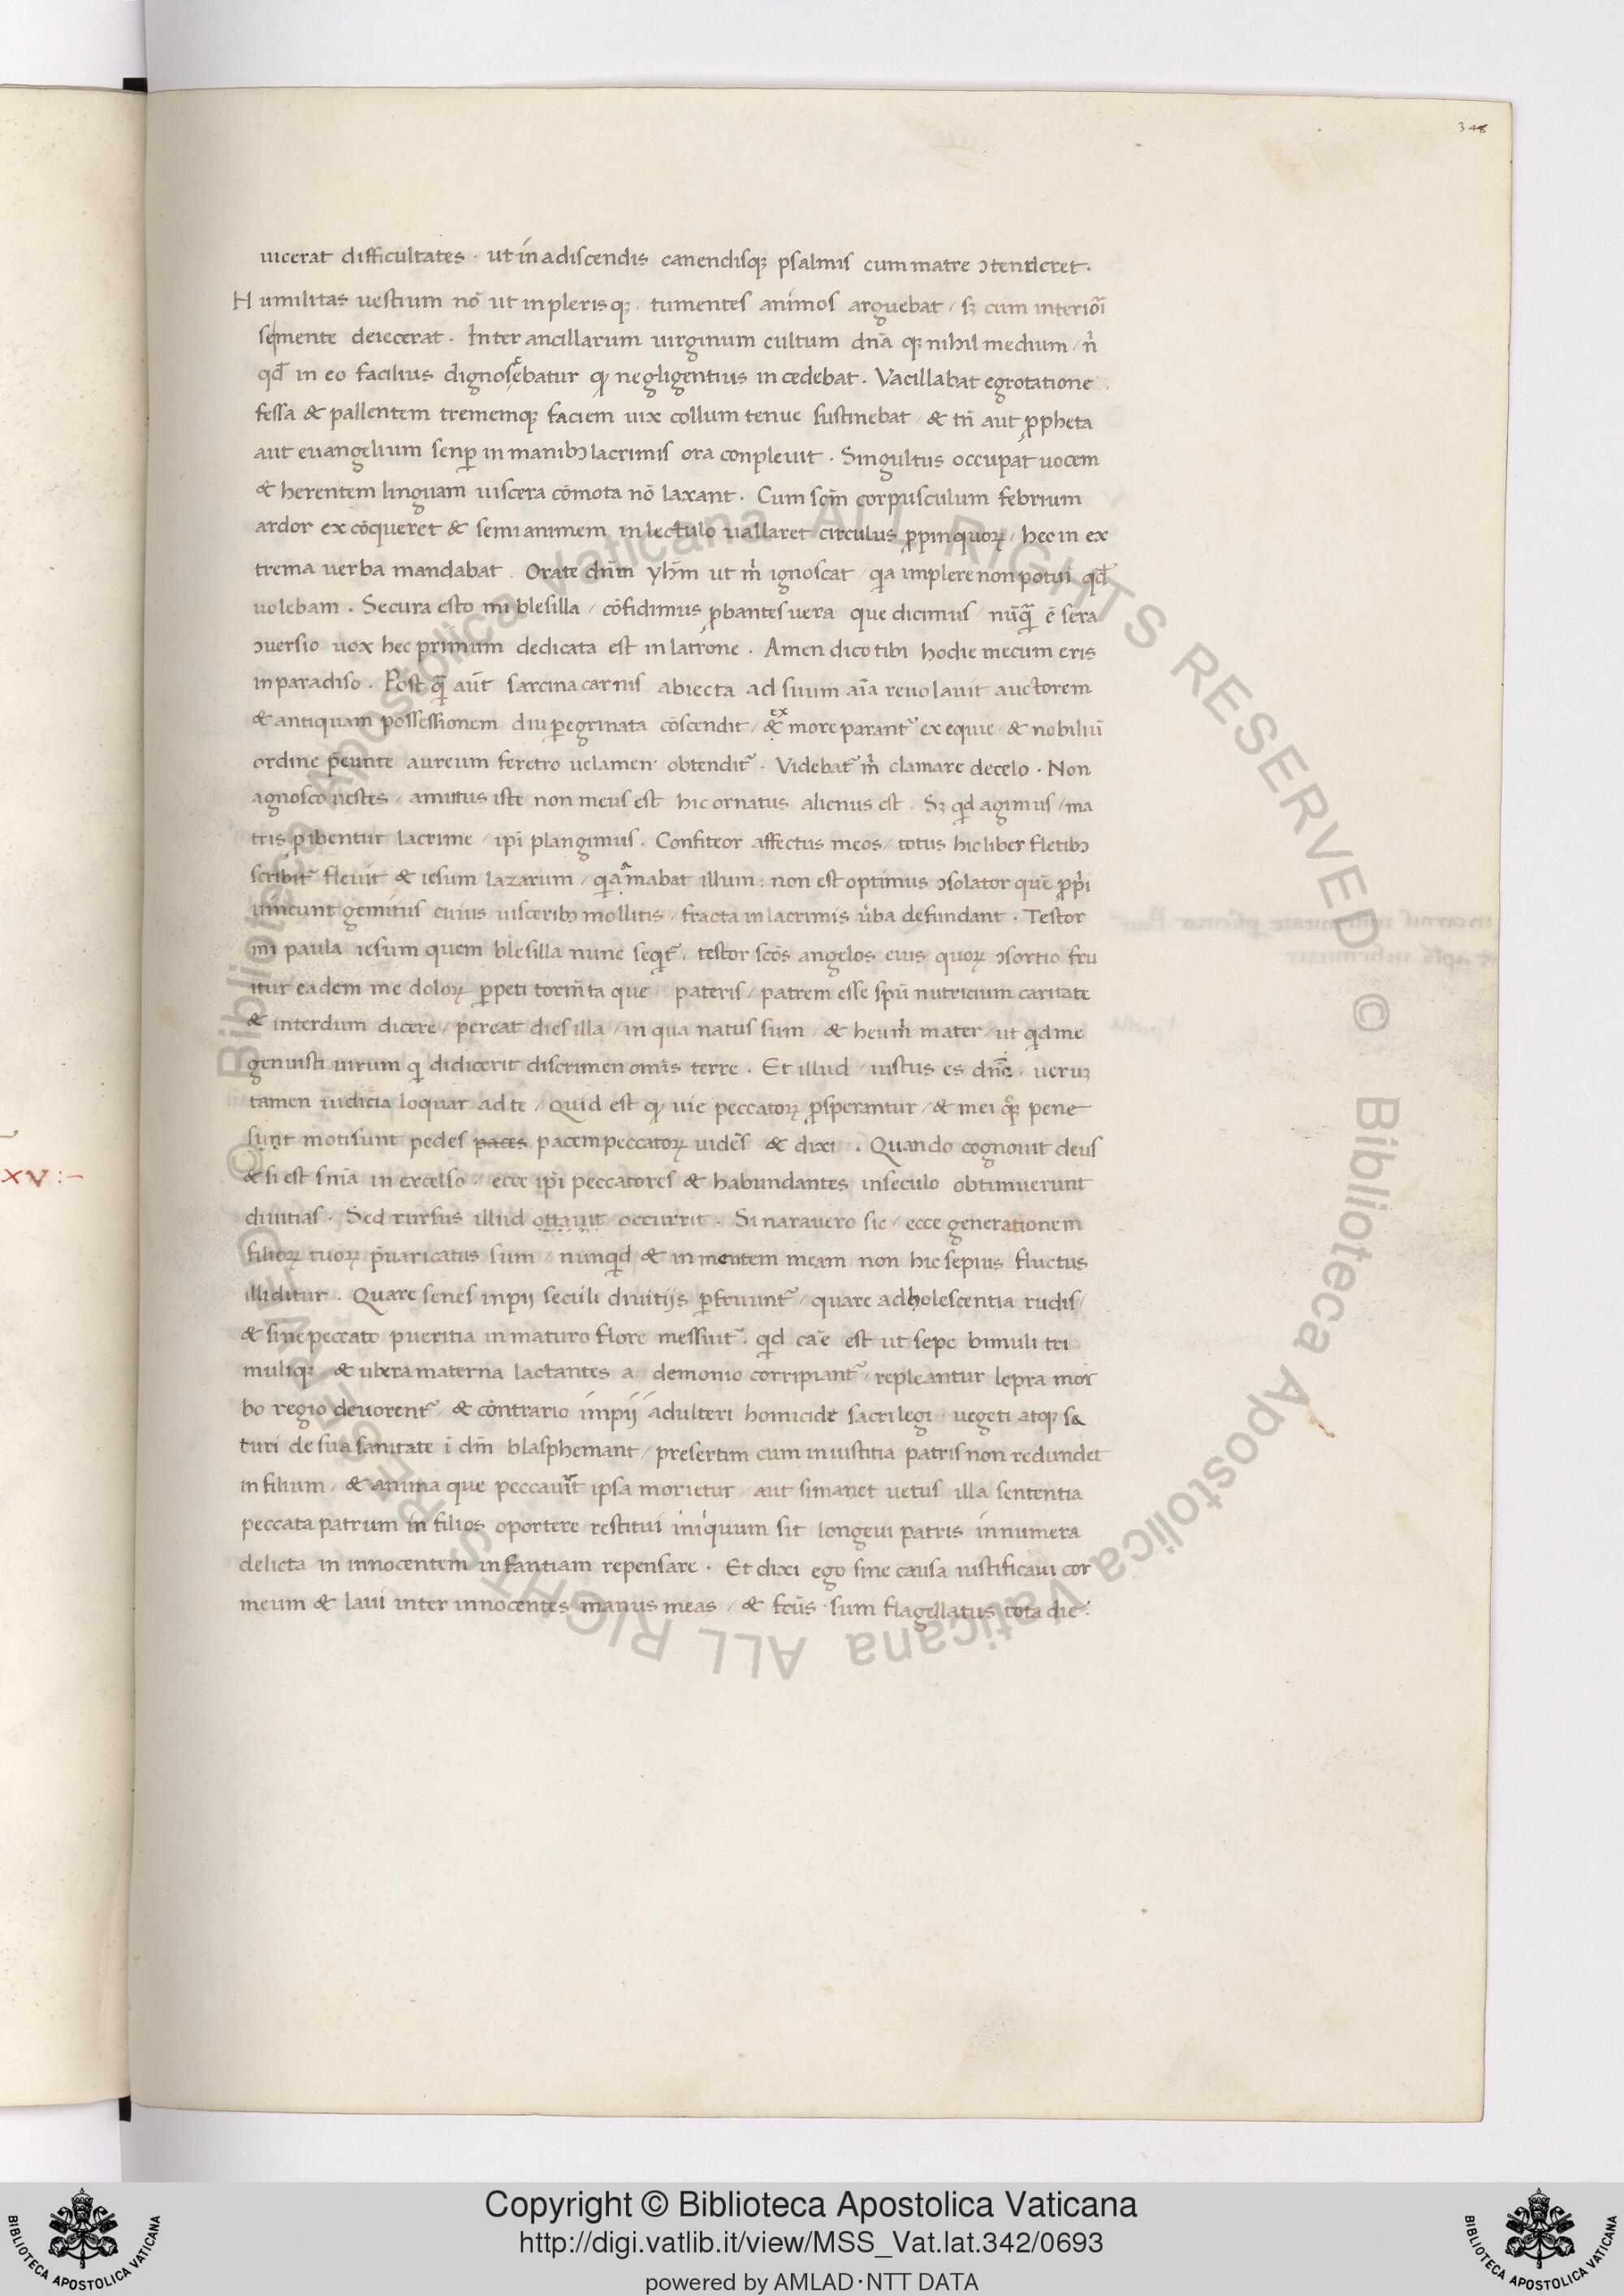 348
uicerat difficultates · ut in adiscendis canendisqꝫ psalmis cum matre ↄtenderet ·
Humilitas uestium nō ut in plerisqꝫ / tumentes animos arguebat / sꝫ cum interiōi
semente deiecerat · Inter ancillarum uirginum cultum dnā qꝫ nihil medium / n̄
qđ in eo facilius dignoscebatur qꝫ negligentius incedebat · Vacillabat egrotatione
fessa & pallentem trememqꝫ faciem uix collum tenue sustinebat / & tn̄ aut ꝓpheta
aut euangelium senꝑ in manibꝫ lacrimis ora conpleuit · Singultus occupat uocem
& herentem linguam uiscera cōmota nō laxant · Cum scm̄ corpusculum febrium
ardor excōqueret & semianimem in lectulo uallaret circulus ꝓpinquoꝝ / hec in ex
trema uerba mandabat · Orate dn̄m yhm̄ ut m̄ ignoscat / qia implere non potui qđ
uolebam · Secura esto mi blesilla / cōfidimus ꝓbantes uera que dicimus / nūqꝫ ē sera
ↄuersio uox hec primum dedicata est in latrone · Amen dico tibi hodie mecum eris
in paradiso · Post qꝫ aūt sarcina carnis abiecta ad suum aīa reuolauit auctorem
& antiquam possessionem diu ꝑegrinata cōscendit / & ex more parant᷑ exequie / & nobiliū
ordine p̄eunte aureum feretro uelamen obtendit᷑ · Videbat᷑ m̄ clamare de celo · Non
agnosco uestes / amittus iste non meus est hic ornatus alienus est · Sꝫ qd agimus / ma
tris ꝓibentur lacrime / ipī plangimus · Confiteor affectus meos / totus hic liber fletibꝫ
scribit᷑ fleuit & iesum lazarum / qia amabat illum : non est optimus ↄsolator quē ꝓpi
uincunt gemitus cuius uisceribꝫ mollitis / fracta in lacrimis ūba defundant · Testor
mi paula iesum quem blesilla nunc seqt᷑ / testor scōs angelos eius quoꝝ ↄsortio fru
itur eadem me doloꝝ ꝑpeti torm̄ta que pateris / patrem esse spū nutricium caritate
& interdum dicere / pereat dies illa / in qua natus sum / & heu m̄ mater / ut qd me
genuisti uirum q didicerit discrimen omīs terre · Et illud / iustus es dnē / ueruꝫ
tamen iudicia loquar ad te / Quid est qꝫ uie peccatoꝝ ꝓsperantur / & mei qꝫ pene
sunt moti sunt pedes paces pacem peccatoꝝ uidēs & dixi · Quando cognouit deus
& si est snīa in excelso / ecce ipī peccatores & habundantes in seculo obtinuerunt
diuitias · Sed rursus illud ottauit occurrit · Si narauero sic / ecce generationem
filioꝝ tuoꝝ p̄uaricatus sum / nunqd & in mentem meam non hic sepius fluctus
illiditur · Quare senes inpij seculi diuitijs ꝑfruunt᷑ / quare adholescentia rudis /
& sine peccato pueritia inmaturo flore messiut᷑ · qd cāe est ut sepe bimuli tri
muliqꝫ / & ubera materna lactantes a demonio corripiant᷑ / repleantur lepra mor
bo regio deuorent᷑ / & cōntrario impij adulteri homicide sacrilegi / uegeti atqꝫ sa
turi de sua sanitate ī dm̄ blasphemant / presertim cum iniustitia patris non redundet
in filium / & anima que peccauit ipsa morietur / aut si manet uetus illa sententia
peccata patrum in filios oportere restitui iniquum sit longeui patris innumera
delicta in innocentem infantiam repensare · Et dixi ego sine causa iustificaui cor
meum & laui inter innocentes manus meas / & fcūs sum flagellatus tota die ·
xv :-
Copyright © Biblioteca Apostolica Vaticana
http://digi.vatlib.it/view/MSS_Vat.lat.342/0693
powered by AMLAD·NTT DATA
BIBLIOTECA APOSTOLICA VATICANA
BIBLIOTECA APOSTOLICA VATICANA
© Biblioteca Apostolica Vaticana ALL RIGHTS RESERVED © Biblioteca Apostolica Vaticana ALL RIGHTS RESERVED